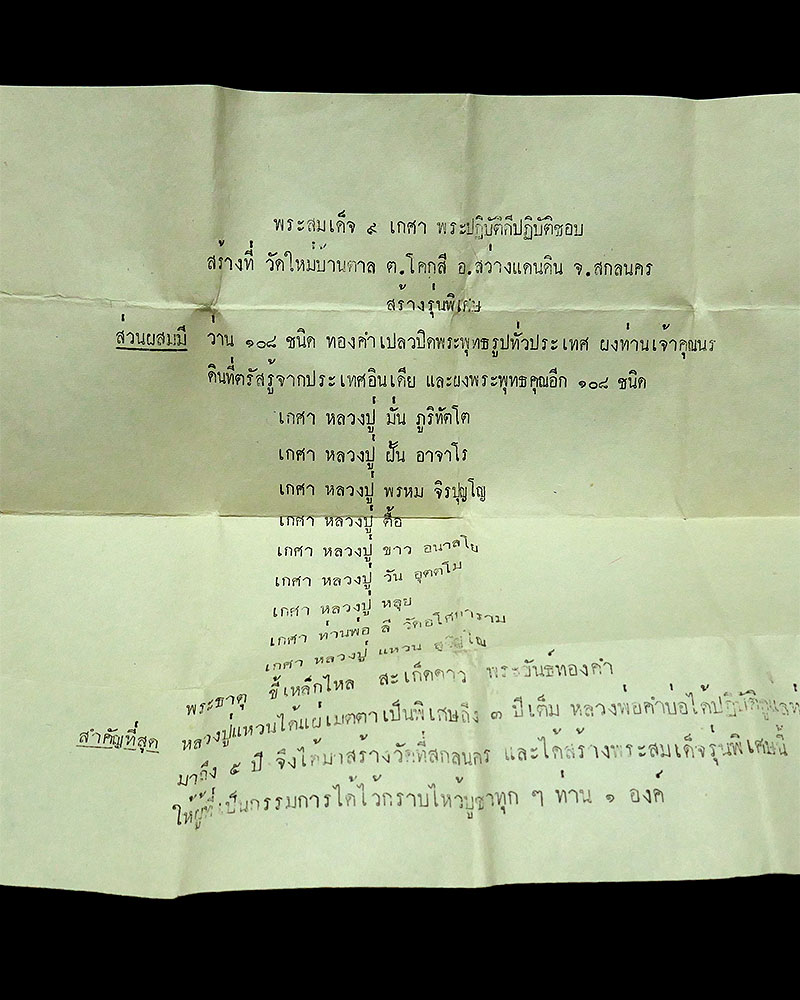 พระสมเด็จ ๙ เกศา พระปฏิบัติดีปฏิบัติชอบ
สร้างที่ วัดใหม่บ้านตาล ต.โคกสี อ.สว่างแดนดิน จ.สกลนคร
สร้างรุ่นพิเศษ
ส่วนผสมมี ว่าน ๑๐๘ ชนิด ทองคำเปลวปิดพระพุทธรูปทั่วประเทศ ผงท่านเจ้าคุณนร
ดินที่ตรัสรู้จากประเทศอินเดีย และผงพระพุทธคุณอีก ๑๐๘ ชนิด
เกศา หลวงปู่ มั่น ภูริทัตโต
เกศา หลวงปู่ ฝั้น อาจาโร
เกศา หลวงปู่ พรหม จิรปุญโญ
เกศา หลวงปู่ ตื้อ
เกศา หลวงปู่ ขาว อนาลโย
เกศา หลวงปู่ วัน อุตตโม
เกศา หลวงปู่ หลุย
เกศา ท่านพ่อ ลี วัดอโศการาม
เกศา หลวงปู่ แหวน
พระธาตุ ขี้เหล็กไหล สะเก็ดดาว พระขันธ์ทองคำ
สำคัญที่สุด หลวงปู่แหวนได้แผ่เมตตาเป็นพิเศษถึง ๓ ปีเต็ม หลวงพ่อคำบ่อได้ปฏิบัติดูแล
มาถึง ๕ ปี จึงได้มาสร้างวัดที่สกลนคร และได้สร้างพระสมเด็จรุ่นพิเศษนี้
ให้ผู้ที่เป็นกรรมการได้ไว้กราบไหว้บูชาทุก ๆ ท่าน ๑ องค์